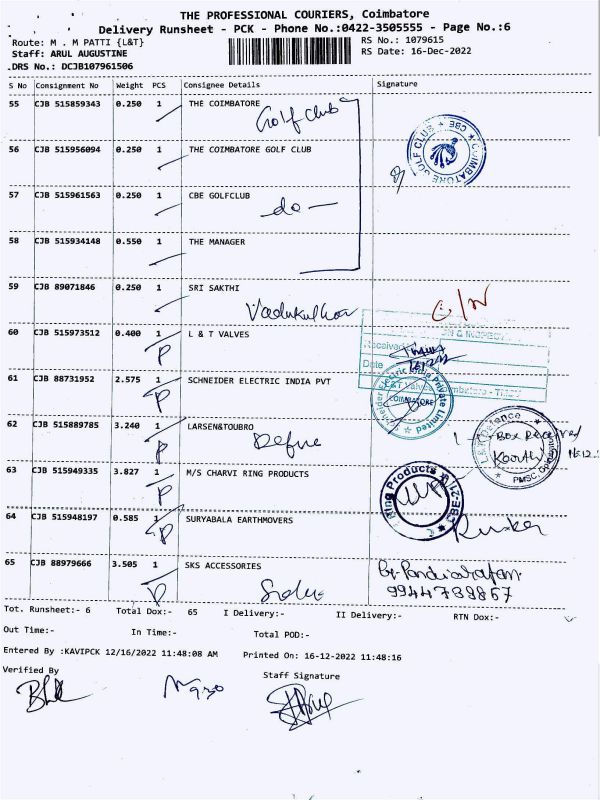 THE PROFESSIONAL COURIERS, Coimbatore
Delivery Runsheet - PCK - Phone No.:0422-3505555 - Page No.:6
Route: M . M PATTI {L&T}
RS No.: 1079615
Staff: ARUL AUGUSTINE
RS Date: 16-Dec-2022
DRS No.: DCJB107961506
S No Consignment No Weight PCS Consignee Details Signature
55 CJB 515859343 0.250 1 THE COIMBATORE
Golf club
56 CJB 515956094 0.250 1 THE COIMBATORE GOLF CLUB
COIMBATORE GOLF CLUB ★ CBE ★
57 CJB 515961563 0.250 1 CBE GOLFCLUB
do
58 CJB 515934148 0.550 1 THE MANAGER
59 CJB 89071846 0.250 1 SRI SAKTHI
60 CJB 515973512 0.400 1 L & T VALVES
P
Received
Date
61 CJB 88731952 2.575 1 SCHNEIDER ELECTRIC INDIA PVT
P
COIMBATORE
Private Limited
62 CJB 515889785 3.240 1 LARSEN&TOUBRO
P
Box Received
63 CJB 515949335 3.827 1 M/S CHARVI RING PRODUCTS
P
Ring Products
64 CJB 515948197 0.585 1 SURYABALA EARTHMOVERS
P
65 CJB 88979666 3.505 1 SKS ACCESSORIES
P
Tot. Runsheet:- 6 Total Dox:- 65 I Delivery:- II Delivery:- RTN Dox:-
Out Time:- In Time:- Total POD:-
Entered By :KAVIPCK 12/16/2022 11:48:08 AM Printed On: 16-12-2022 11:48:16
Verified By
Staff Signature